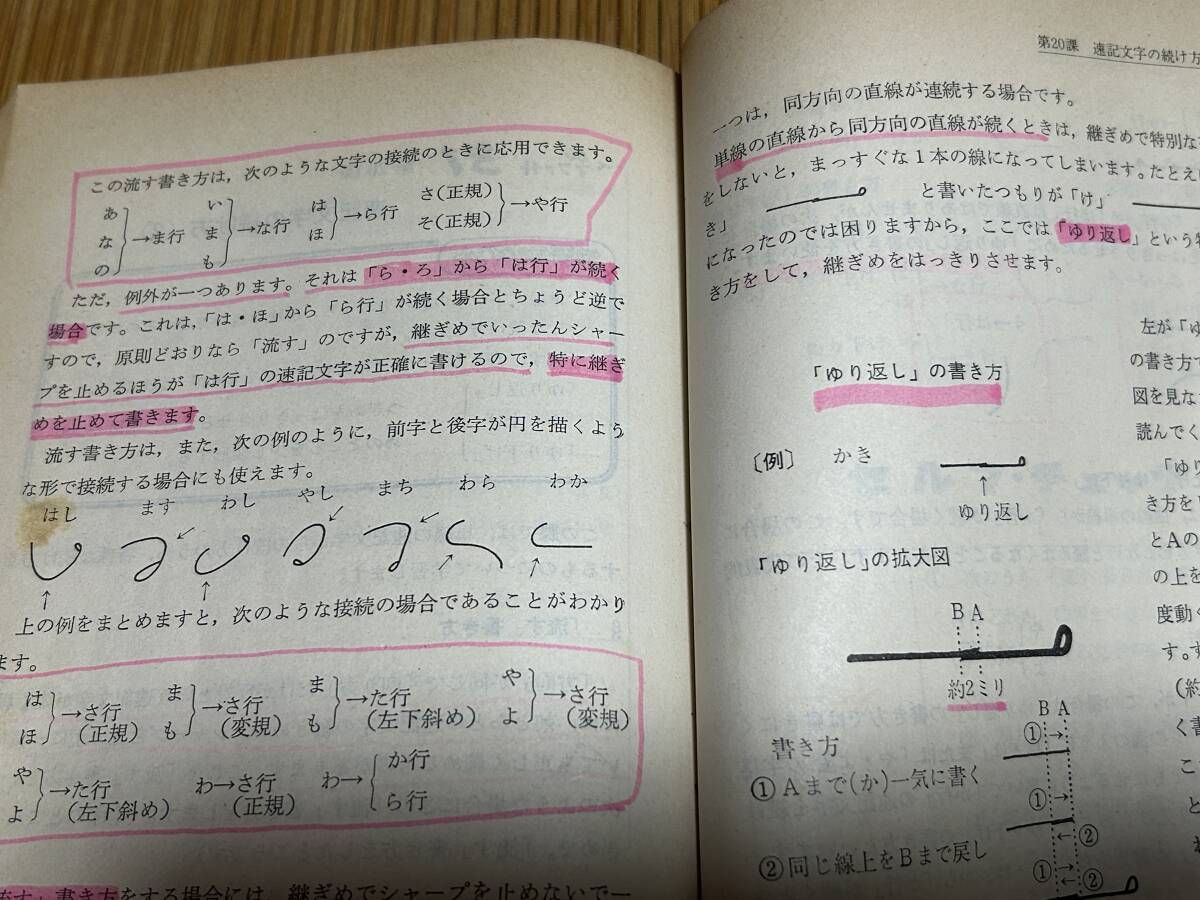 この流す書き方は，次のような文字の接続のときに応用できます。
あ な の →ま行
い ま も →な行
は ほ →ら行
さ(正規) そ(正規) →や行
ただ，例外が一つあります。それは「ら・ろ」から「は行」が続く
場合です。これは，「は・ほ」から「ら行」が続く場合とちょうど逆で
すので，原則どおりなら「流す」のですが，継ぎめでいったんシャー
プを止めるほうが「は行」の速記文字が正確に書けるので，特に継ぎ
めを止めて書きます。
流す書き方は，また，次の例のように，前字と後字が円を描くよう
な形で接続する場合にも使えます。
はし ます わし やし まち わら わか
上の例をまとめますと，次のような接続の場合であることがわかり
ます。
は ほ →さ行 (正規)
ま も →さ行 (変規)
ま も →た行 (左下斜め)
や よ →さ行 (変規)
や よ →た行 (左下斜め)
わ→さ行 (正規)
わ→ か行 ら行
流す」書き方をする場合には，継ぎめでシャープを止めないで一
第20課 速記文字の続け方
一つは，同方向の直線が連続する場合です。
単線の直線から同方向の直線が続くときは，継ぎめで特別な
をしないと，まっすぐな1本の線になってしまいます。たとえ
き」 と書いたつもりが「け」
になったのでは困りますから，ここでは「ゆり返し」という
き方をして，継ぎめをはっきりさせます。
「ゆり返し」の書き方
〔例〕 かき
↑
ゆり返し
「ゆり返し」の拡大図
B A
約2ミリ
書き方
①Aまで(か)一気に書く
②同じ線上をBまで戻し
B A
①→
①→
←②
①→
←②
左が「ゆ
の書き方で
図を見な
読んでく
「ゆり
き方を
とAの
の上を
度動
す。す
(約
く書
こ
と